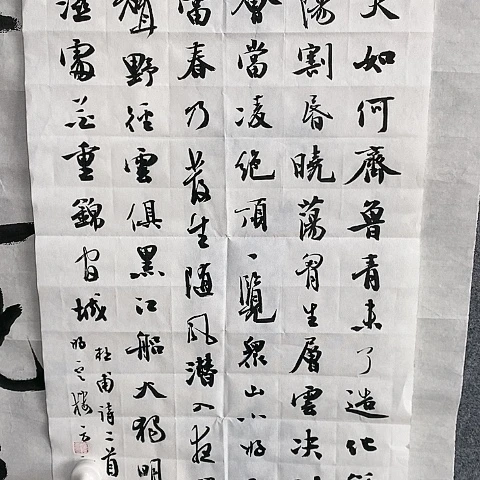 夫如何齊魯青未了造化
陽割昏曉蕩胸生層雲決
會當凌絕頂一覽眾山小好
當春乃發生隨風潛入夜
聲野徑雲俱黑江船火獨明
濕處花重錦官城
杜甫詩二首